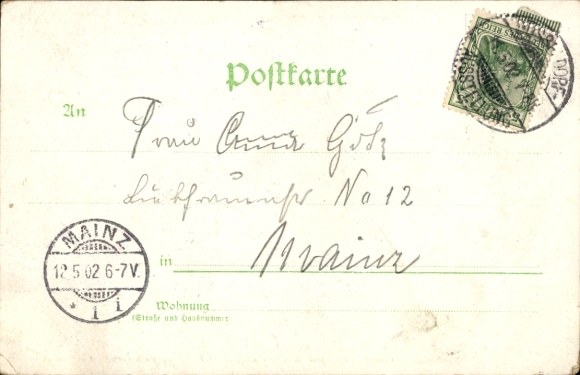 Postkarte
An Frau Anna Götz
No 12
in Mainz
Wohnung
(Straße und Hausnummer
MAINZ
12.5.02 6-7V.
* 1 i